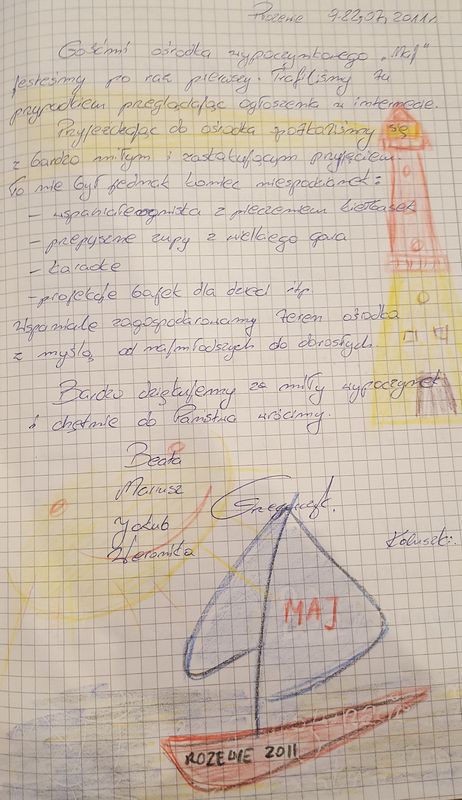 Rozewie 9-22.07.2011r.
Gośćmi ośrodka wypoczynkowego „Maj"
jesteśmy po raz pierwszy. Trafiliśmy tu
przypadkiem przeglądając ogłoszenia w internecie.
Przyjeżdżając do ośrodka spotkaliśmy się
z bardzo miłym i zaskakującym przyjęciem.
To nie był jednak koniec niespodzianek:
- wspaniałe ogniska z pieczeniem kiełbasek
- przepyszne zupy z wielkiego gara
- karaoke
- projekcje bajek dla dzieci itp.
Wspaniale zagospodarowany teren ośrodka
z myślą od najmłodszych do dorosłych.
Bardzo dziękujemy za miły wypoczynek
i chętnie do Państwa wrócimy.
Beata
Mariusz
Jakub
Weronika
Koluszki.
MAJ
ROZEWIE 2011